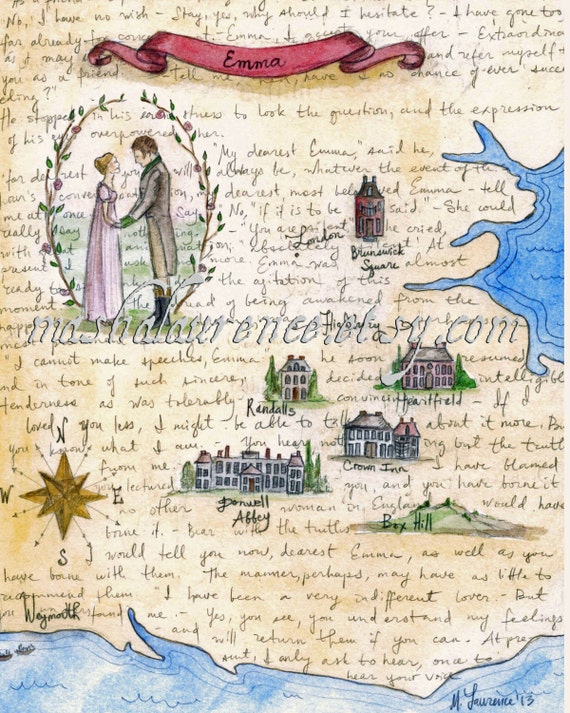 No, I have no wish - Stay, yes, why should I hesitate? - I have gone too
far already for concealment. - Emma, I accept your offer - Extraordinary
as it may and refer myself to
Emma
you as a friend. - tell me then, have I no chance of ever succ
eding?"
He stopped in his earnestness to look the question, and the expression
of his eyes overpowered her.
"My dearest Emma," said he,
for dearest you will always be, whatever the event of the
hour's conversation, my dearest, most beloved Emma - tell
me at once. Say "No," if it is to be said." - She could
really say nothing. - "You are silent," he cried,
London
Brunswick
Square
with animation; absolutely silent! At
present I more." Emma was almost
ready to the agitation of this
moment dread of being awakened from the
mashalaurence.etsy.com
Highbury
"I cannot make speeches, Emma" - he soon resumed
and in tone of such sincere, decided, intelligible
tenderness as was tolerably convincing. - If I
Randalls
Hartfield
loved you less, I might be able to talk about it more. But
you know what I am. - You hear nothing but the truth
N
from me. - I have blamed
Crown Inn
you, and lectured you, and you have borne it
W
E
as no other woman in England would have
Donwell
Abbey
borne it. - Bear with the truths
Box Hill
S
I would tell you now, dearest Emma, as well as you
have borne with them. The manner, perhaps, may have as little to
recommend them. "I have been a very indifferent lover. - But
you understand me. - Yes, you see, you understand my feelings
Weymouth
- and will return them if you can. At pres
ent, I only ask to hear, once to
hear your voice
M. Laurence '13